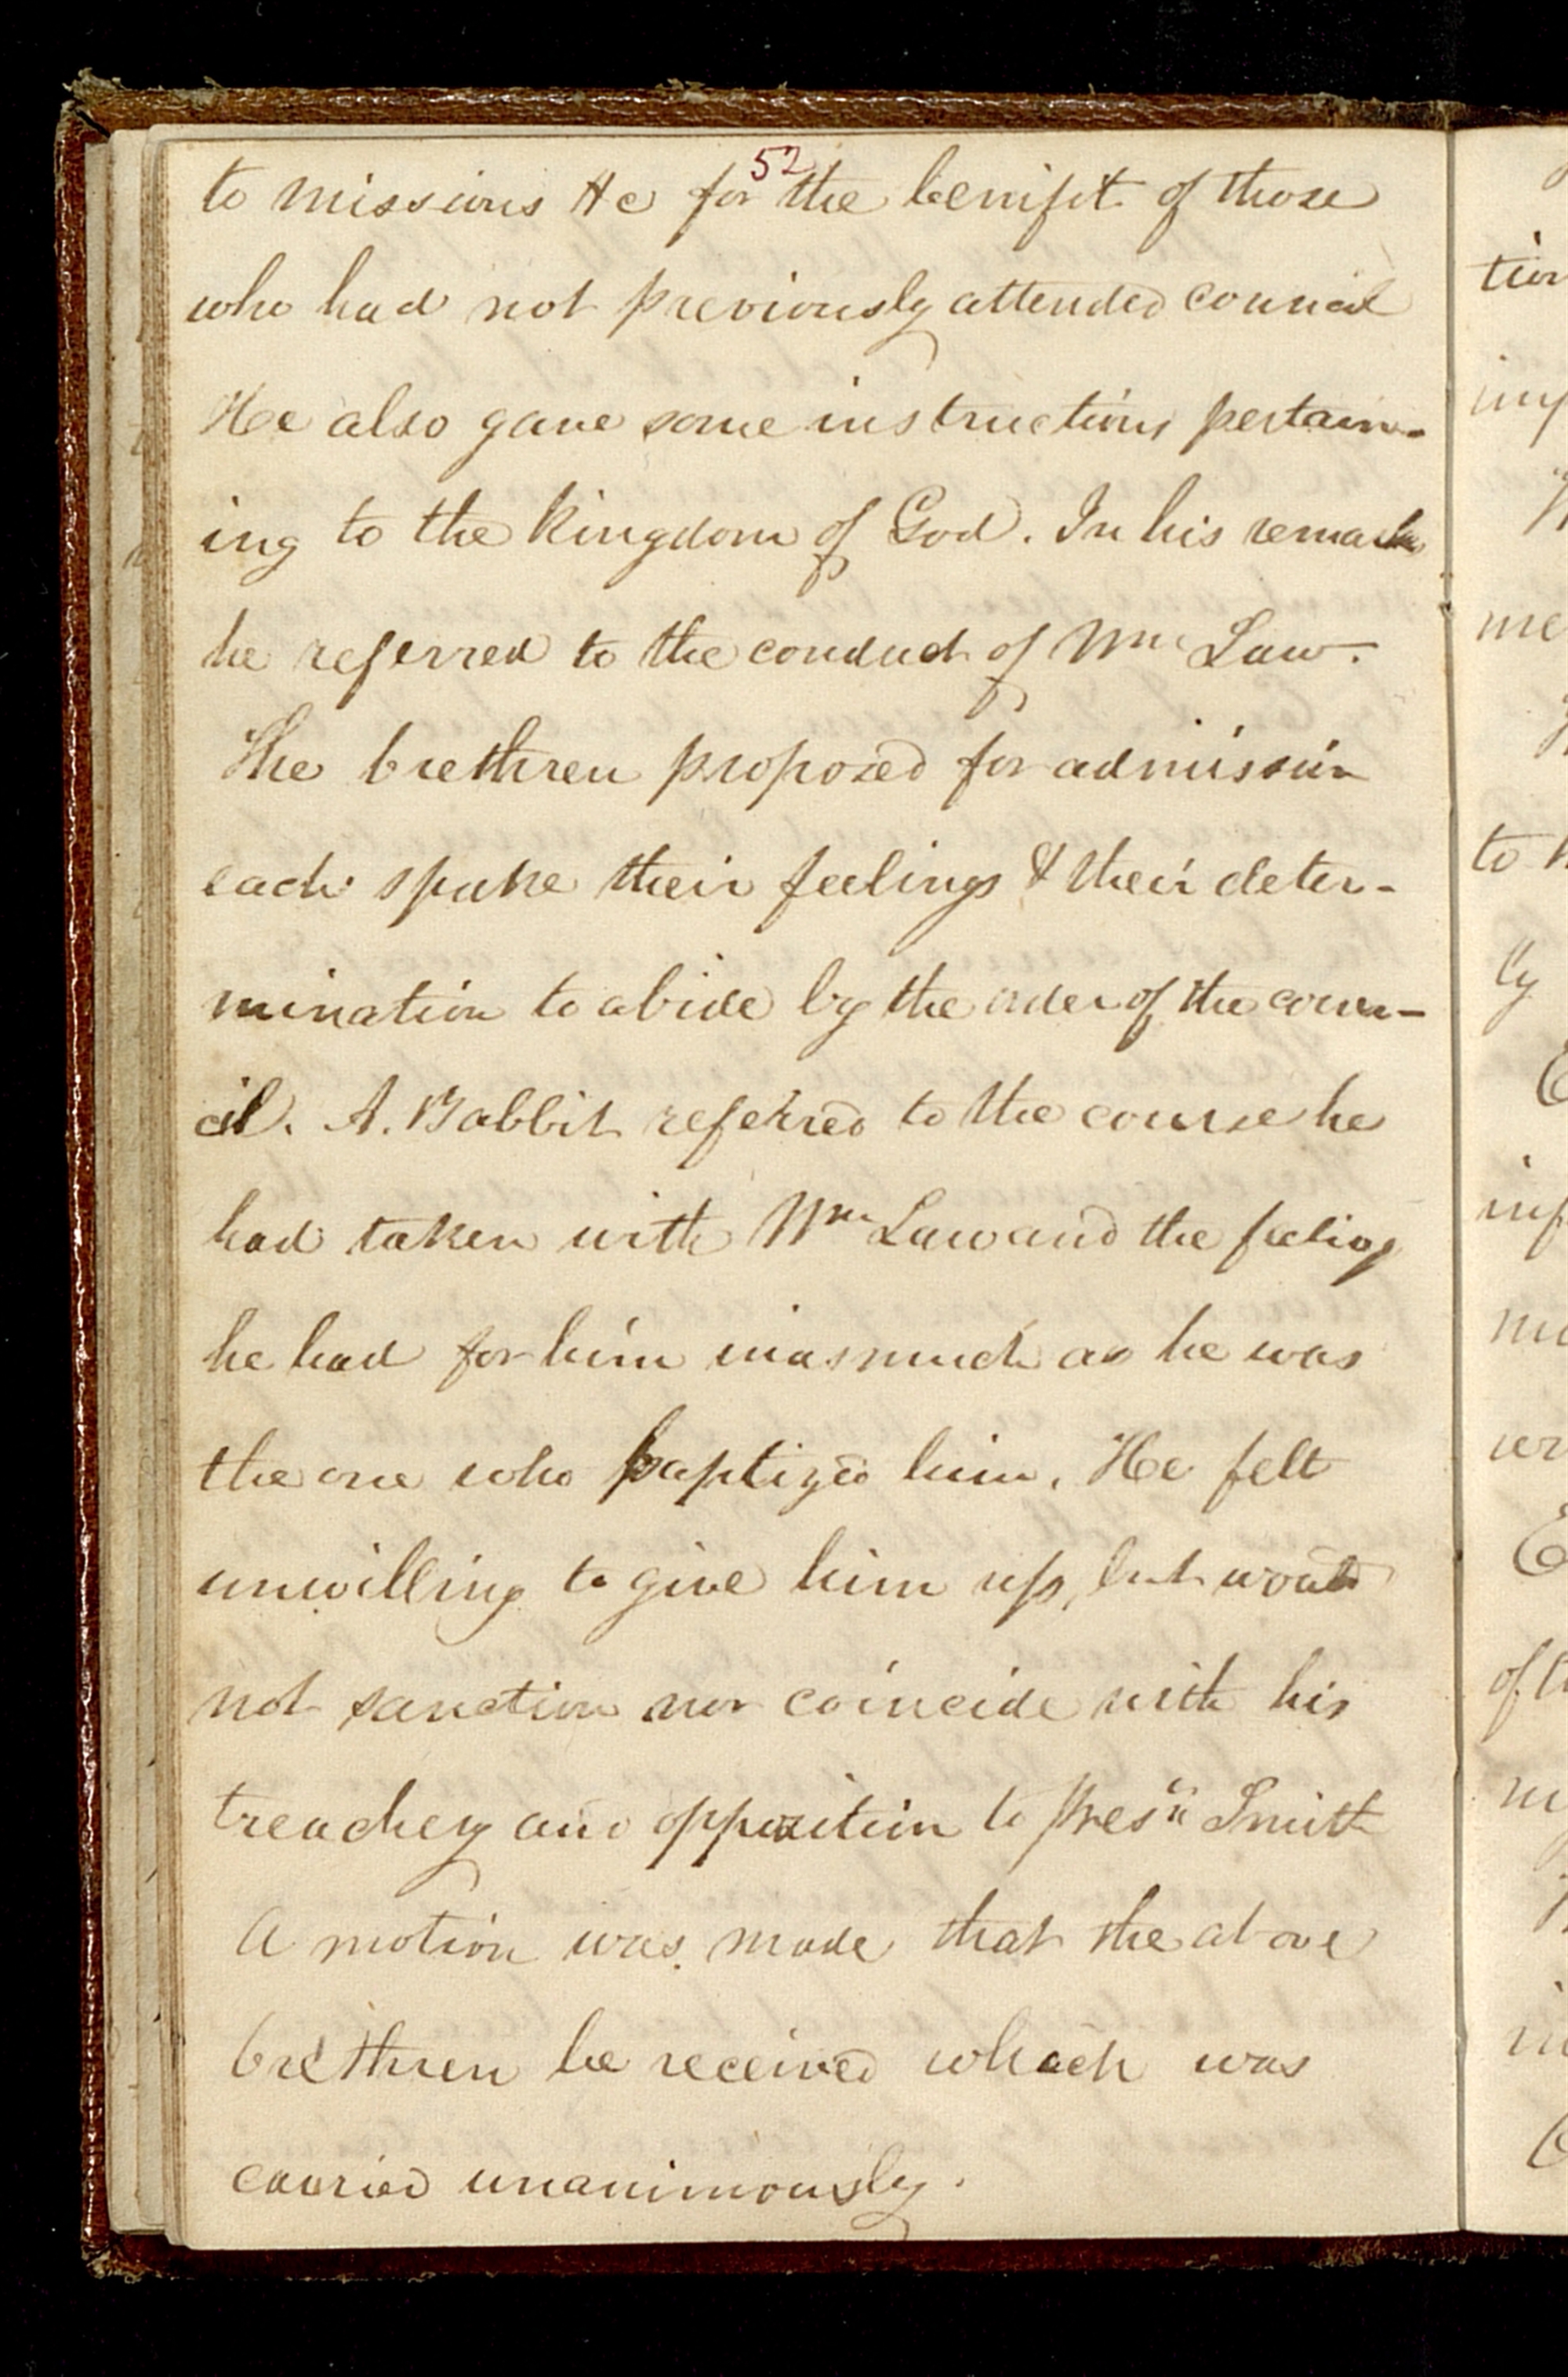 52
to missions &c for the benifit of those
who had not previously attended council
He also gave some instructions pertain-
ing to the kingdom of God. In his remarks
he referred to the conduct of Wm Law.
The brethren proposed for admission
each spake their feelings & their deter-
mination to abide by the order of the coun-
cil. A. Babbit referred to the course he
had taken with Wm Law and the feelings
he had for him inasmuch as he was
the one who baptized him. He felt
unwilling to give him up, but would
not sanction nor coincide with his
treachery and opposition to Pres.t Smith
A motion was made that the above
brethren be received which was
carried unanimously.
tion
me
to
ly